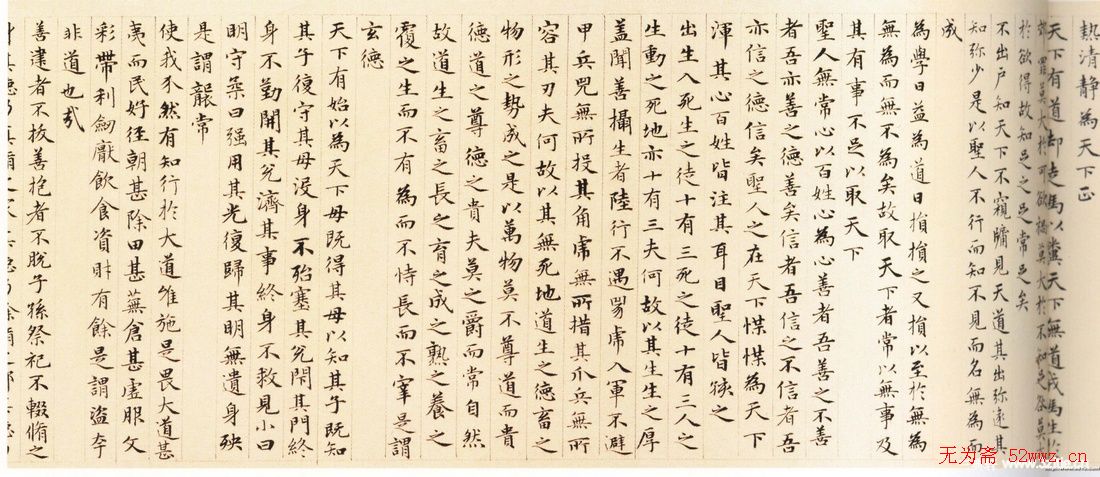 熱清静為天下正
天下有道却走馬以糞天下無道戎馬生於
郊罪莫大於可欲禍莫大於不知足咎莫
於欲得故知足之足常足矣
不出戶知天下不窺牖見天道其出弥逺其
知弥少是以聖人不行而知不見而名無為而
成
為學日益為道日損損之又損以至於無為
無為而無不為矣故取天下者常以無事及
其有事不足以取天下
聖人無常心以百姓心為心善者吾善之不善
者吾亦善之德善矣信者吾信之不信者吾
亦信之德信矣聖人之在天下惵惵為天下
渾其心百姓皆注其耳目聖人皆孩之
出生入死生之徒十有三死之徒十有三人之
生動之死地亦十有三夫何故以其生生之厚
盖聞善攝生者陸行不遇兕虎入軍不避
甲兵兕無所投其角虎無所措其爪兵無所
容其刃夫何故以其無死地道生之德畜之
物形之勢成之是以萬物莫不尊道而貴
德道之尊德之貴夫莫之爵而常自然
故道生之畜之長之育之成之熟之養之
覆之生而不有為而不恃長而不宰是謂
玄德
天下有始以為天下母既得其母以知其子既知
其子復守其母没身不殆塞其兊閇其門終
身不勤開其兊濟其事終身不救見小曰
明守柔曰强用其光復歸其明無遺身殃
是謂襲常
使我介然有知行於大道唯施是畏大道甚
夷而民好径朝甚除田甚蕪倉甚虚服文
彩帶利劒厭飲食資財有餘是謂盗夸
非道也哉
善建者不拔善抱者不脫子孫祭祀不輟脩之
无为斋 52wwz.cn